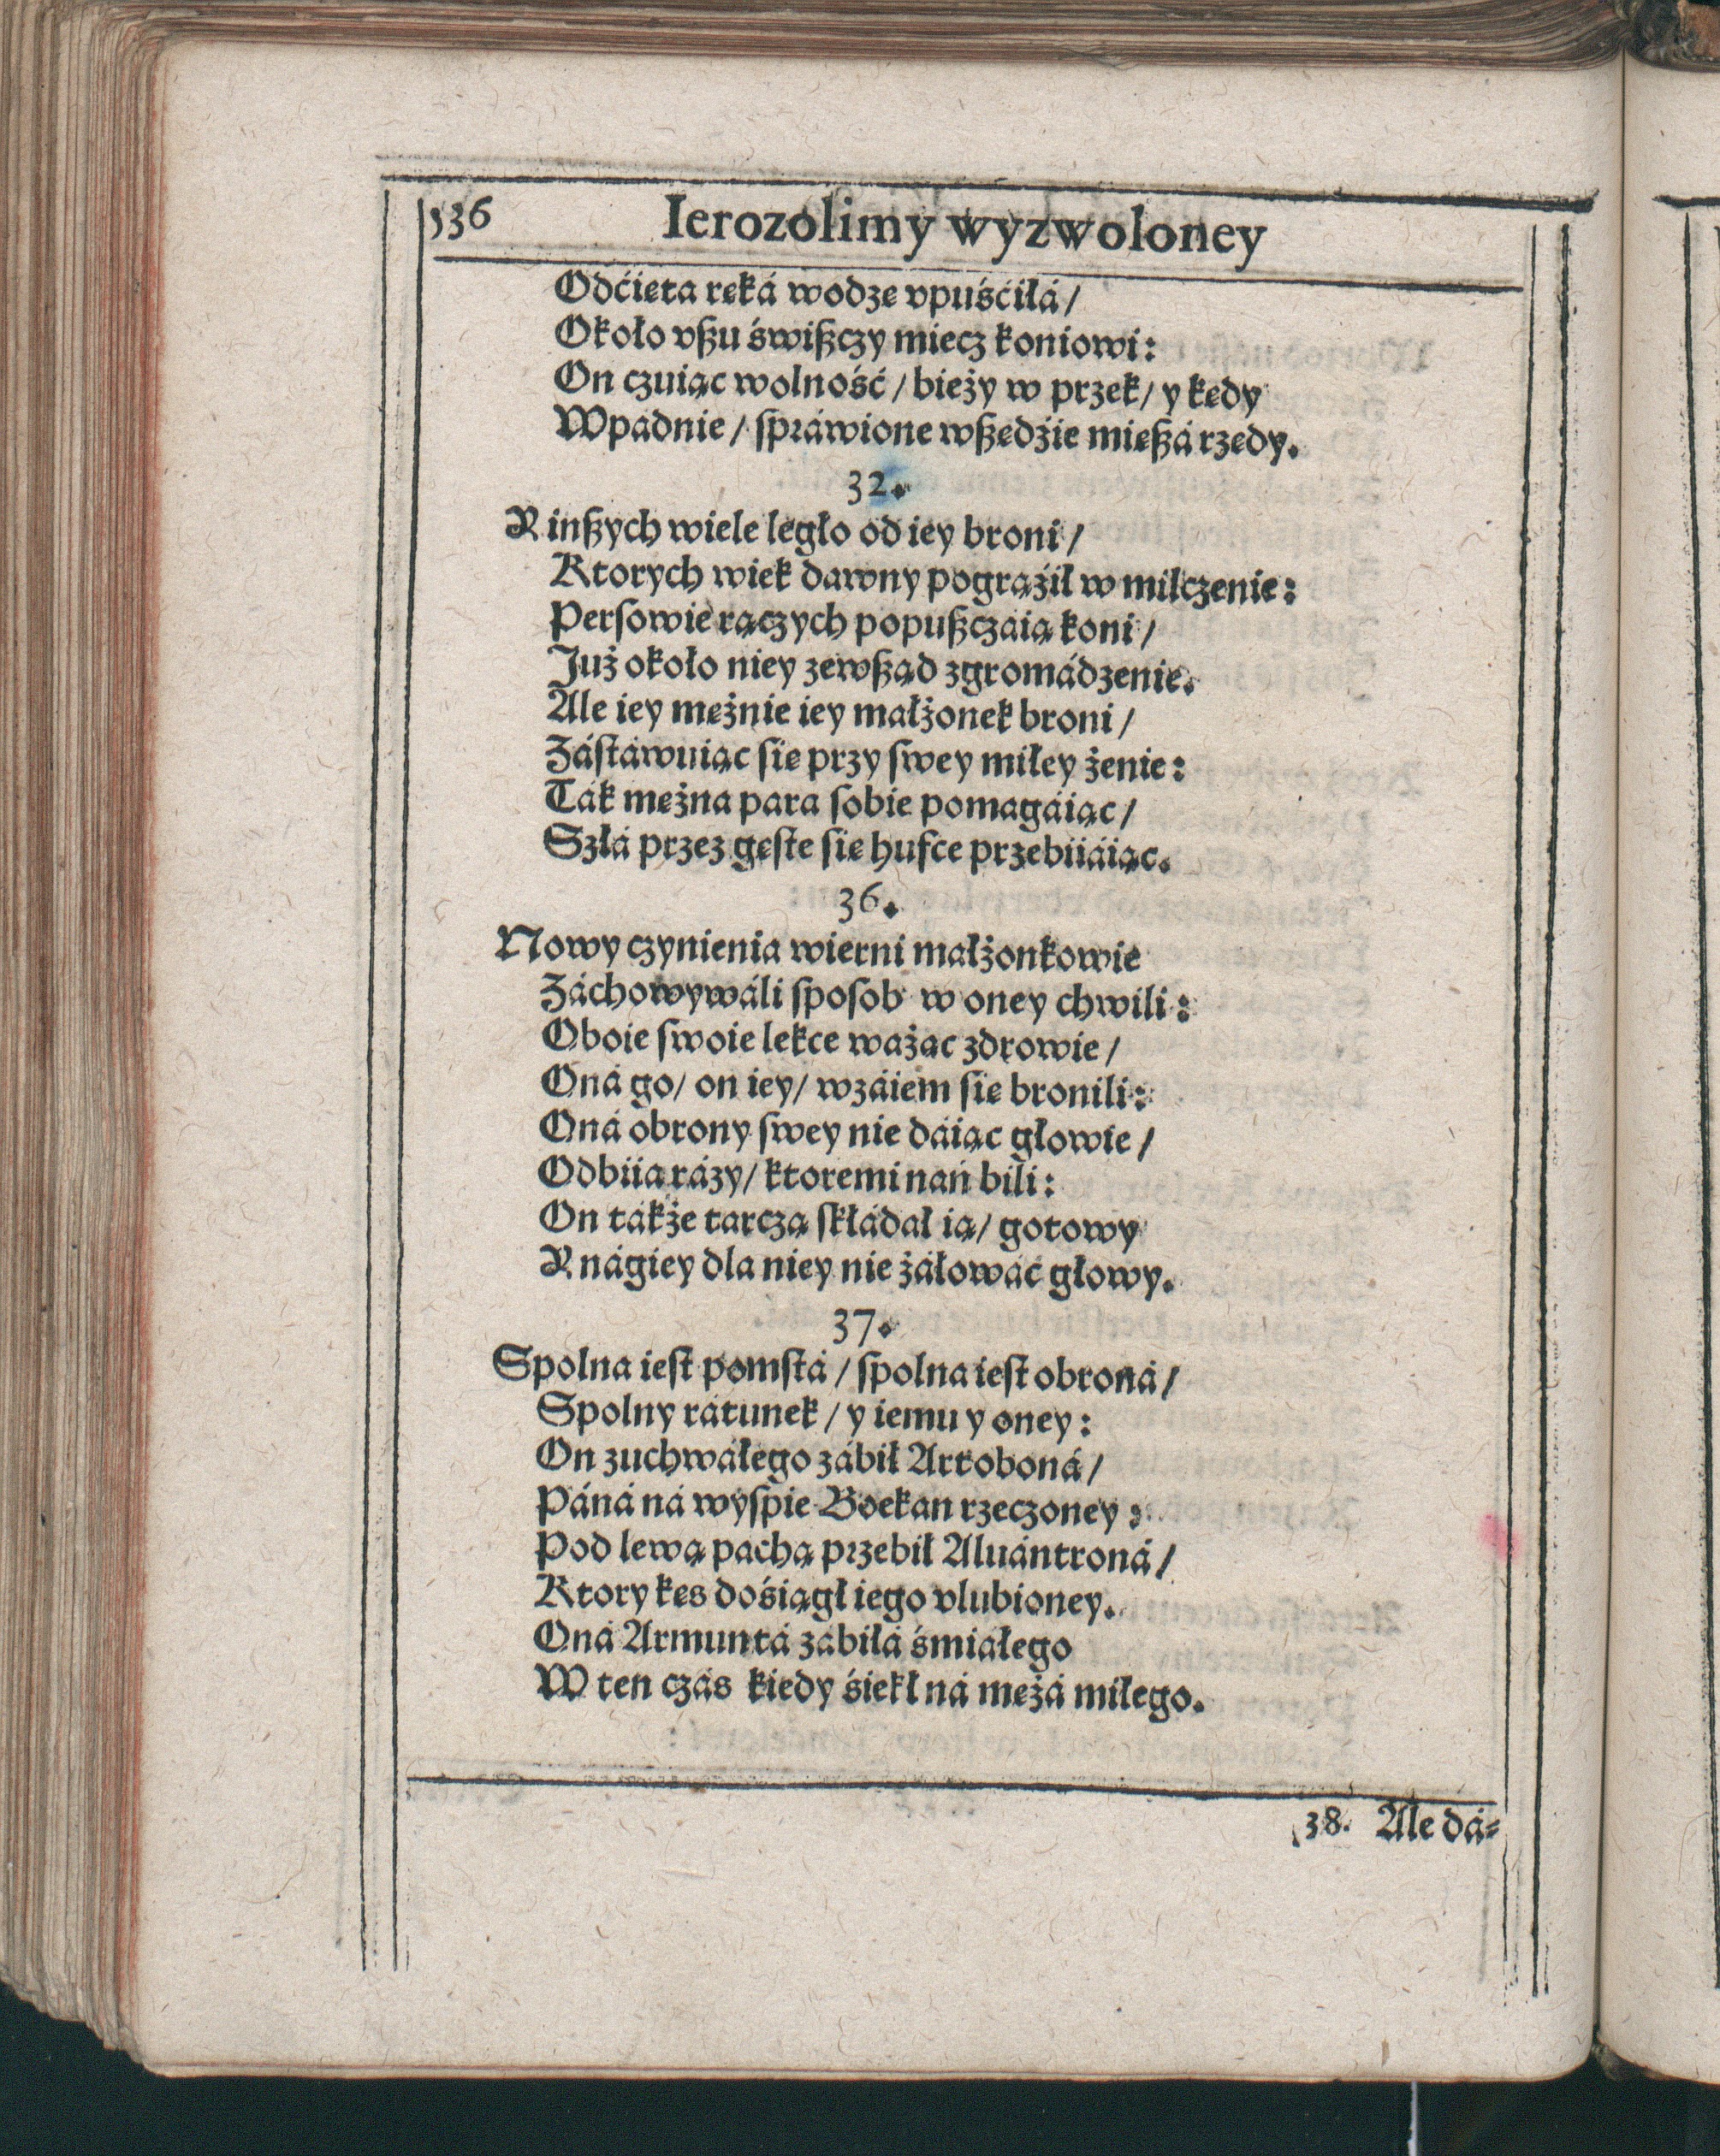 536
Ierozolimy wyzwoloney
Odćięta ręká wodze vpuśćiłá/
Około vßu świßczy miecz koniowi:
On czuiąc wolność/ bieży w przek/ y kędy
Wpadnie/ spráwione wßędźie mießá rzędy.
32.
Y inßych wiele legło od iey broni/
Ktorych wiek dawny pogrąźił w milczenie:
Persowie rączych popußczáią koni/
Już około niey zewßąd zgromádzenie.
Ale iey mężnie iey małżonek broni/
Zástáwuiąc się przy swey miłey żenie:
Ták mężna para sobie pomagáiąc/
Szłá przez gęste się hufce przebiiáiąc.
36.
Nowy czynienia wierni małżonkowie
Záchowywáli sposob w oney chwili:
Oboie swoie lekce ważąc zdrowie/
Oná go/ on iey/ wzáiem się bronili:
Oná obrony swey nie dáiąc głowie/
Odbiia rázy/ ktoremi nań bili:
On tákże tarczą skłádał ią/ gotowy
Y nágiey dla niey nie żáłowáć głowy.
37.
Spolna iest pomstá/ spolna iest obroná/
Spolny rátunek/ y iemu y oney:
On zuchwáłego zábił Artoboná/
Páná ná wyspie Boekan rzeczoney:
Pod lewą pachą przebił Aluántroná/
Ktory kęs dośiągł iego vlubioney.
Oná Armuntá zábiłá śmiáłego
W ten czás kiedy śiekł ná mężá miłego.
38. Ale dá-